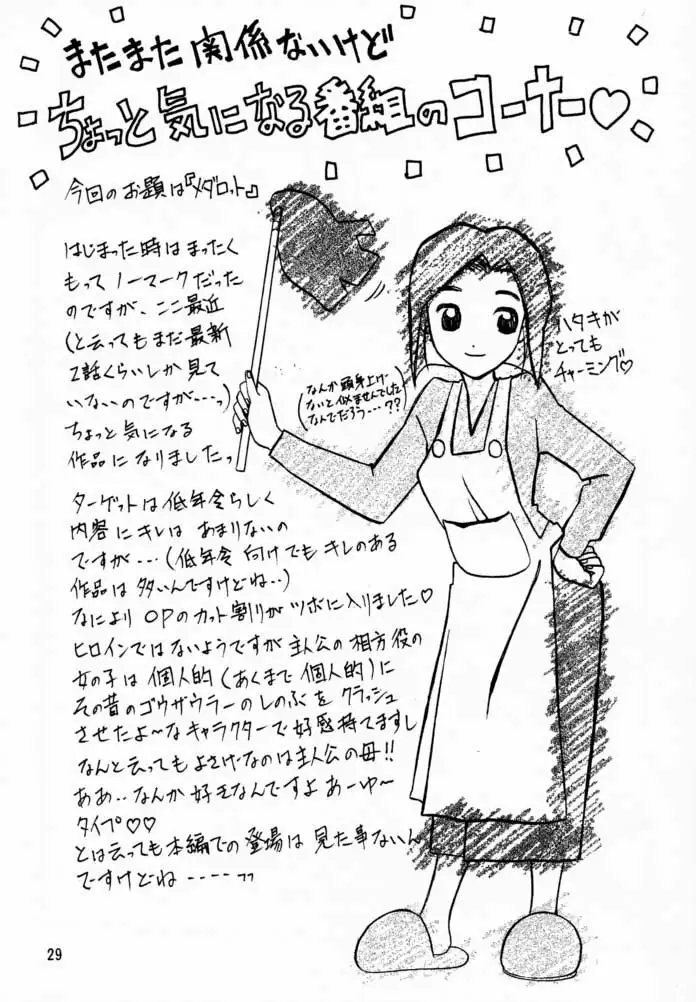 またまた関係ないけど
ちょっと気になる番組のコーナー♡
今回のお題は『メダロット』
はじまった時はまったく
もってノーマークだった
のですが、ここ最近
(と云ってもまだ最新
2話くらいしか見て
いないのですが---っ)
ちょっと気になる
作品になりましたっ
(なんか頭身上げ
ないと似ませんでした
なんでだろう…??)
ハタキが
とっても
チャーミング♡
ターゲットは低年令らしく
内容にキレは あまりないの
ですが…(低年令向けでもキレのある
作品は多いんですけどね..)
なにより OPのカット割りがツボに入りました♡
ヒロインではないようですが主人公の相方役の
女の子は個人的(あくまで個人的)に
その昔のゴウザウラーのしのぶを クラッシュ
させたよ〜なキャラクターで好感持てますし
なんと云ってもよさげなのは主人公の母!!
ああ..なんか好きなんですよ あーゆ〜
タイプ♡♡
とは云っても本編での登場は見た事ないん
ですけどね----
29